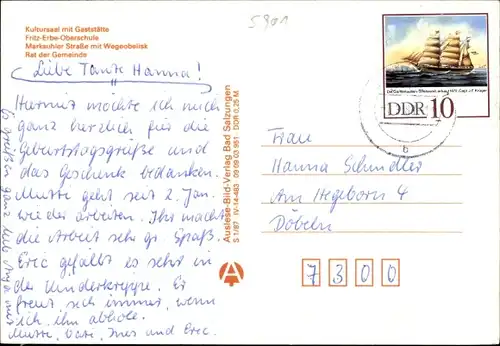 Kultursaal mit Gaststätte
Fritz-Erbe-Oberschule
Marksuhler Straße mit Wegeobelisk
Rat der Gemeinde
5901
Liebe Tante Hanna!
Hiermit möchte ich mich
ganz herzlich für die
Geburtstagsgrüße und
das Geschenk bedanken.
Mutte geht seit 2. Jan.
wieder arbeiten. Ihr macht
die Arbeit sehr gr. Spaß.
Eric gefällt es sehr in
der Kinderkrippe. Er
freut sich immer, wenn
ich ihn abhole.
Es grüßen ganz lieb Anja mit
Mutte, Vati, Ines und Eric.
Auslese-Bild-Verlag Bad Salzungen
S 1/87 IV-14-483 09 09 03 951 DDR 0,25 M
DDR 10
Frau
Hanna Schindler
Am Hegeborn 4
Döbeln
7300